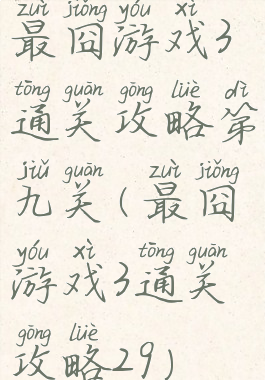 zuì jiǒng yóu xì
最囧游戏3
tōng guān gōng lüè dì
通关攻略第
jiǔ guān zuì jiǒng
九关(最囧
yóu xì tōng guān
游戏3通关
gōng lüè
攻略29)